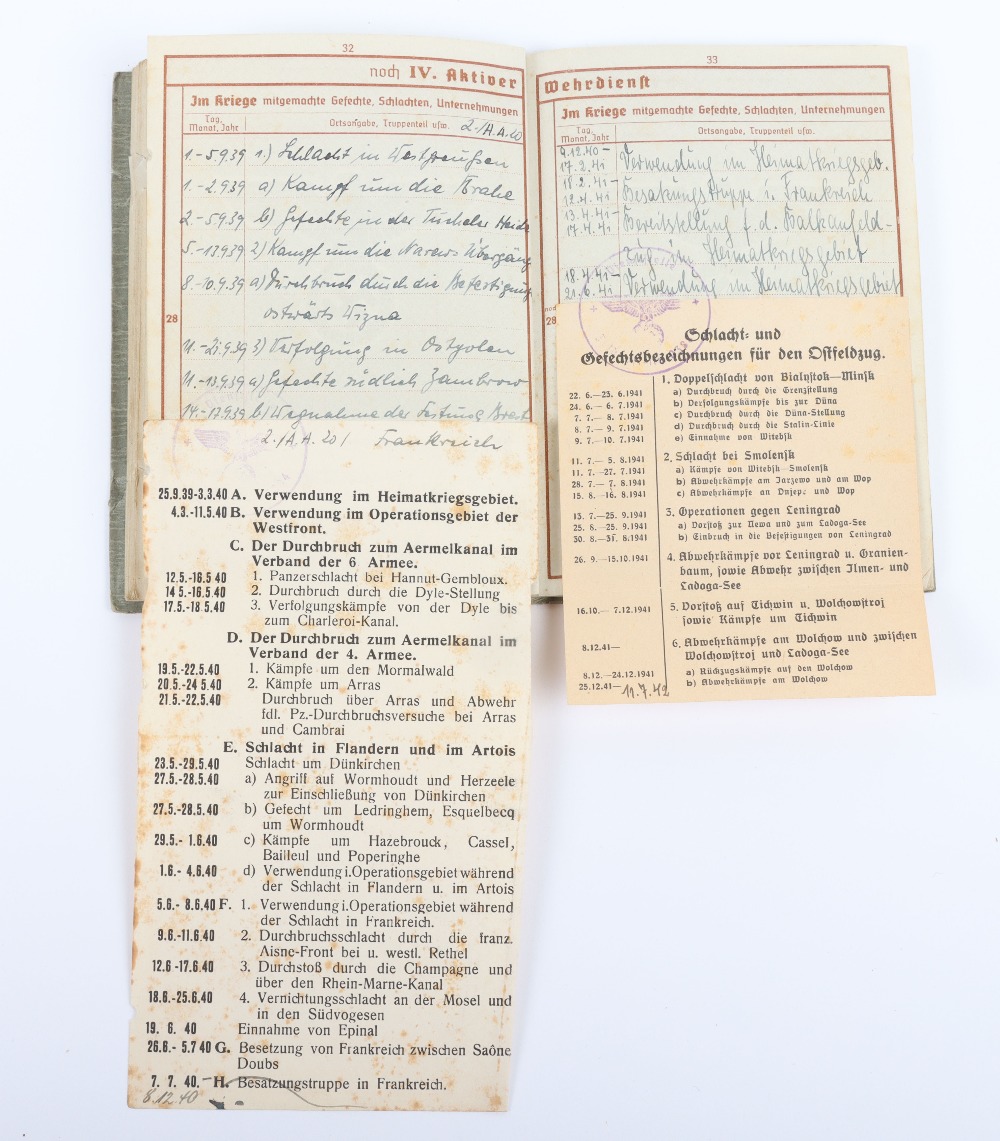 32
noch IV. Aktiver
Im Kriege mitgemachte Gefechte, Schlachten, Unternehmungen
Tag, Monat, Jahr
Ortsangabe, Truppenteil usw. 2./A.A.20
1.-5.9.39 1.) Schlacht in Westpreußen
1.-2.9.39 a) Kampf um die Brahe
2.-5.9.39 b) Gefechte in der Tucheler Heide
5.-13.9.39 2) Kampf um die Narew-Übergäng
8.-10.9.39 a) Durchbruch durch die Befestigung
ostwärts Wizna
28
11.-21.9.39 3) Verfolgung in Ostpolen
11.-13.9.39 a) Gefechte südlich Zambrow
14.-17.9.39 b) Wegnahme der Festung Brest
2./A.A.20/ Frankreich
25.9.39-3.3.40 A. Verwendung im Heimatkriegsgebiet.
4.3.-11.5.40 B. Verwendung im Operationsgebiet der
Westfront.
C. Der Durchbruch zum Aermelkanal im
Verband der 6 Armee.
12.5.-16.5 40 1. Panzerschlacht bei Hannut-Gembloux.
14 5.-16.5.40 2. Durchbruch durch die Dyle-Stellung
17.5.-18.5.40 3. Verfolgungskämpfe von der Dyle bis
zum Charleroi-Kanal.
D. Der Durchbruch zum Aermelkanal im
Verband der 4. Armee.
19.5.-22.5.40 1. Kämpfe um den Mormalwald
20.5.-24 5.40 2. Kämpfe um Arras
21.5.-22.5.40 Durchbruch über Arras und Abwehr
fdl. Pz.-Durchbruchsversuche bei Arras
und Cambrai
E. Schlacht in Flandern und im Artois
23.5.-29.5.40 Schlacht um Dünkirchen
27.5.-28.5.40 a) Angriff auf Wormhoudt und Herzeele
zur Einschließung von Dünkirchen
27.5.-28.5.40 b) Gefecht um Ledringhem, Esquelbecq
um Wormhoudt
29.5.- 1.6.40 c) Kämpfe um Hazebrouck, Cassel,
Bailleul und Poperinghe
1.6.- 4.6.40 d) Verwendung i.Operationsgebiet während
der Schlacht in Flandern u. im Artois
5.6.- 8.6.40 F. 1. Verwendung i.Operationsgebiet während
der Schlacht in Frankreich.
9.6.-11.6.40 2. Durchbruchsschlacht durch die franz.
Aisne-Front bei u. westl. Rethel
12.6 -17.6.40 3. Durchstoß durch die Champagne und
über den Rhein-Marne-Kanal
18.6.-25.6.40 4. Vernichtungsschlacht an der Mosel und
in den Südvogesen
19. 6. 40 Einnahme von Epinal
26.6.- 5.7 40 G. Besetzung von Frankreich zwischen Saône
Doubs
7. 7. 40. - H. Besatzungstruppe in Frankreich.
8.12 40
33
Wehrdienst
Im Kriege mitgemachte Gefechte, Schlachten, Unternehmungen
Tag, Monat, Jahr
Ortsangabe, Truppenteil usw.
9.12.40 -
17.2.41 Verwendung im Heimatkriegsgeb.
18.2.41 -
12.4.41 Besatzungstruppe i. Frankreich
13.4.41 -
17.4.41 Bereitstellung f. d. Balkanfeld-
zug im Heimatkriegsgebiet
18.4.41 -
21.6.41 Verwendung im Heimatkriegsgebiet
28
Schlacht- und
Gefechtsbezeichnungen für den Ostfeldzug.
1. Doppelschlacht von Bialystok—Minsk
22. 6.—23. 6.1941 a) Durchbruch durch die Grenzstellung
24. 6.— 6. 7.1941 b) Verfolgungskämpfe bis zur Düna
7. 7.— 8. 7.1941 c) Durchbruch durch die Düna-Stellung
8. 7.— 9. 7.1941 d) Durchbruch durch die Stalin-Linie
9. 7.—10. 7.1941 e) Einnahme von Witebsk
11. 7.— 5. 8.1941 2. Schlacht bei Smolensk
11. 7.—27. 7.1941 a) Kämpfe von Witebsk—Smolensk
28. 7.— 7. 8.1941 b) Abwehrkämpfe am Jarzewo und am Wop
15. 8.—16. 8.1941 c) Abwehrkämpfe an Dnjepr und Wop
13. 7.—25. 9.1941 3. Operationen gegen Leningrad
25. 8.—25. 9.1941 a) Vorstoß zur Newa und zum Ladoga-See
30. 8.—31. 8.1941 b) Einbruch in die Befestigungen von Leningrad
26. 9.—15.10.1941 4. Abwehrkämpfe vor Leningrad u. Oranien-
baum, sowie Abwehr zwischen Ilmen- und
Ladoga-See
16.10.— 7.12.1941 5. Vorstoß auf Tichwin u. Wolchowstroj
sowie Kämpfe um Tichwin
8.12.41— 6. Abwehrkämpfe am Wolchow und zwischen
Wolchowstroj und Ladoga-See
8.12.—24.12.1941 a) Rückzugskämpfe auf den Wolchow
25.12.41— 11.7.42 b) Abwehrkämpfe am Wolchow